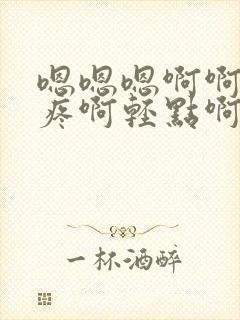 嗯嗯嗯啊啊
疼啊轻點啊
一杯酒醉